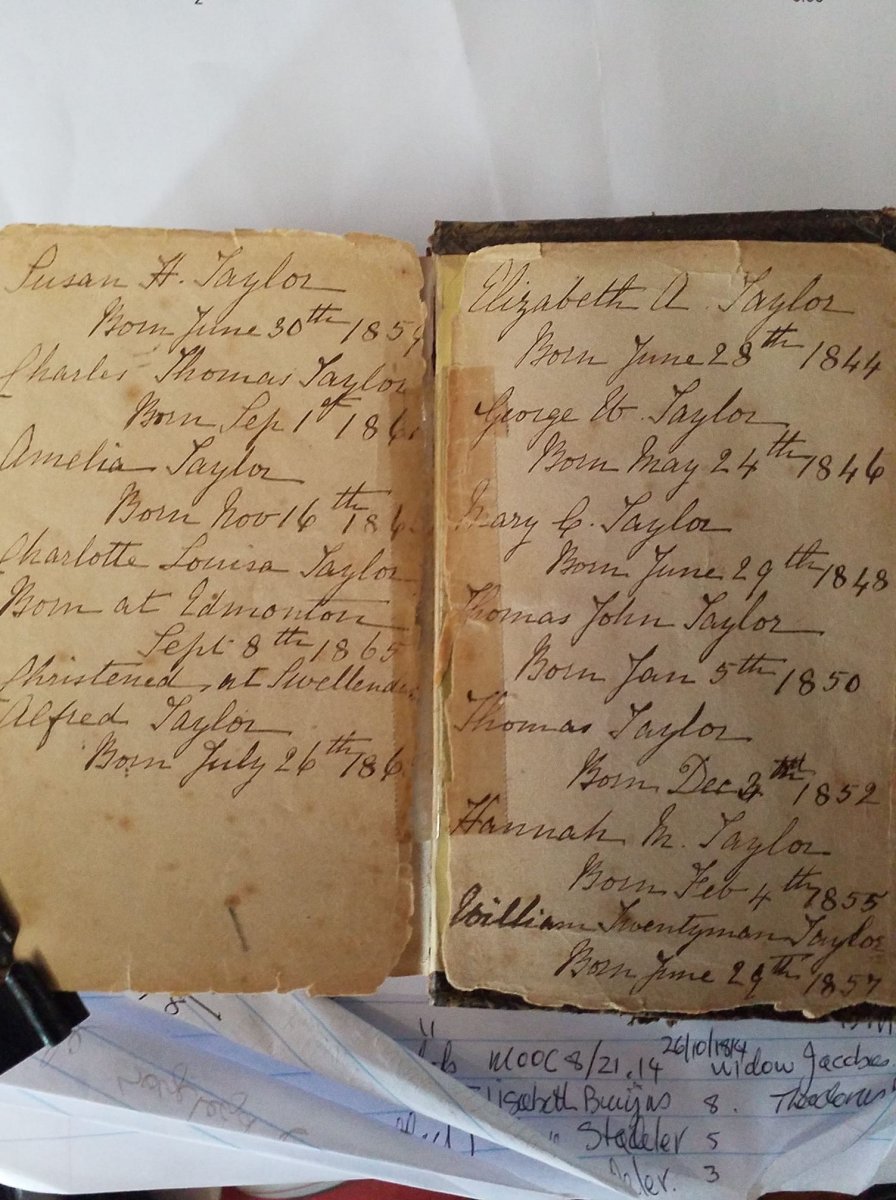 Susan H. Taylor
Born June 30th 1859
Charles Thomas Taylor
Born Sep 1st 186
Amelia Taylor
Born Nov 16th 186
Charlotte Louisa Taylor
Born at Edmonton
Sept 8th 1865
Christened at Swellend
Alfred Taylor
Born July 26th 186
Elizabeth A. Taylor
Born June 28th 1844
George W. Taylor
Born May 24th 1846
Mary C. Taylor
Born June 29th 1848
Thomas John Taylor
Born Jan 5th 1850
Thomas Taylor
Born Dec 1852
Hannah M. Taylor
Born Feb 4th 1855
William Twentyman Taylor
Born June 29th 1857
MOOC 8/21.14 26/10/1814 Widow Jacobus
Elisabeth Buijns 8. Theodorus
" Stadeler 5
3